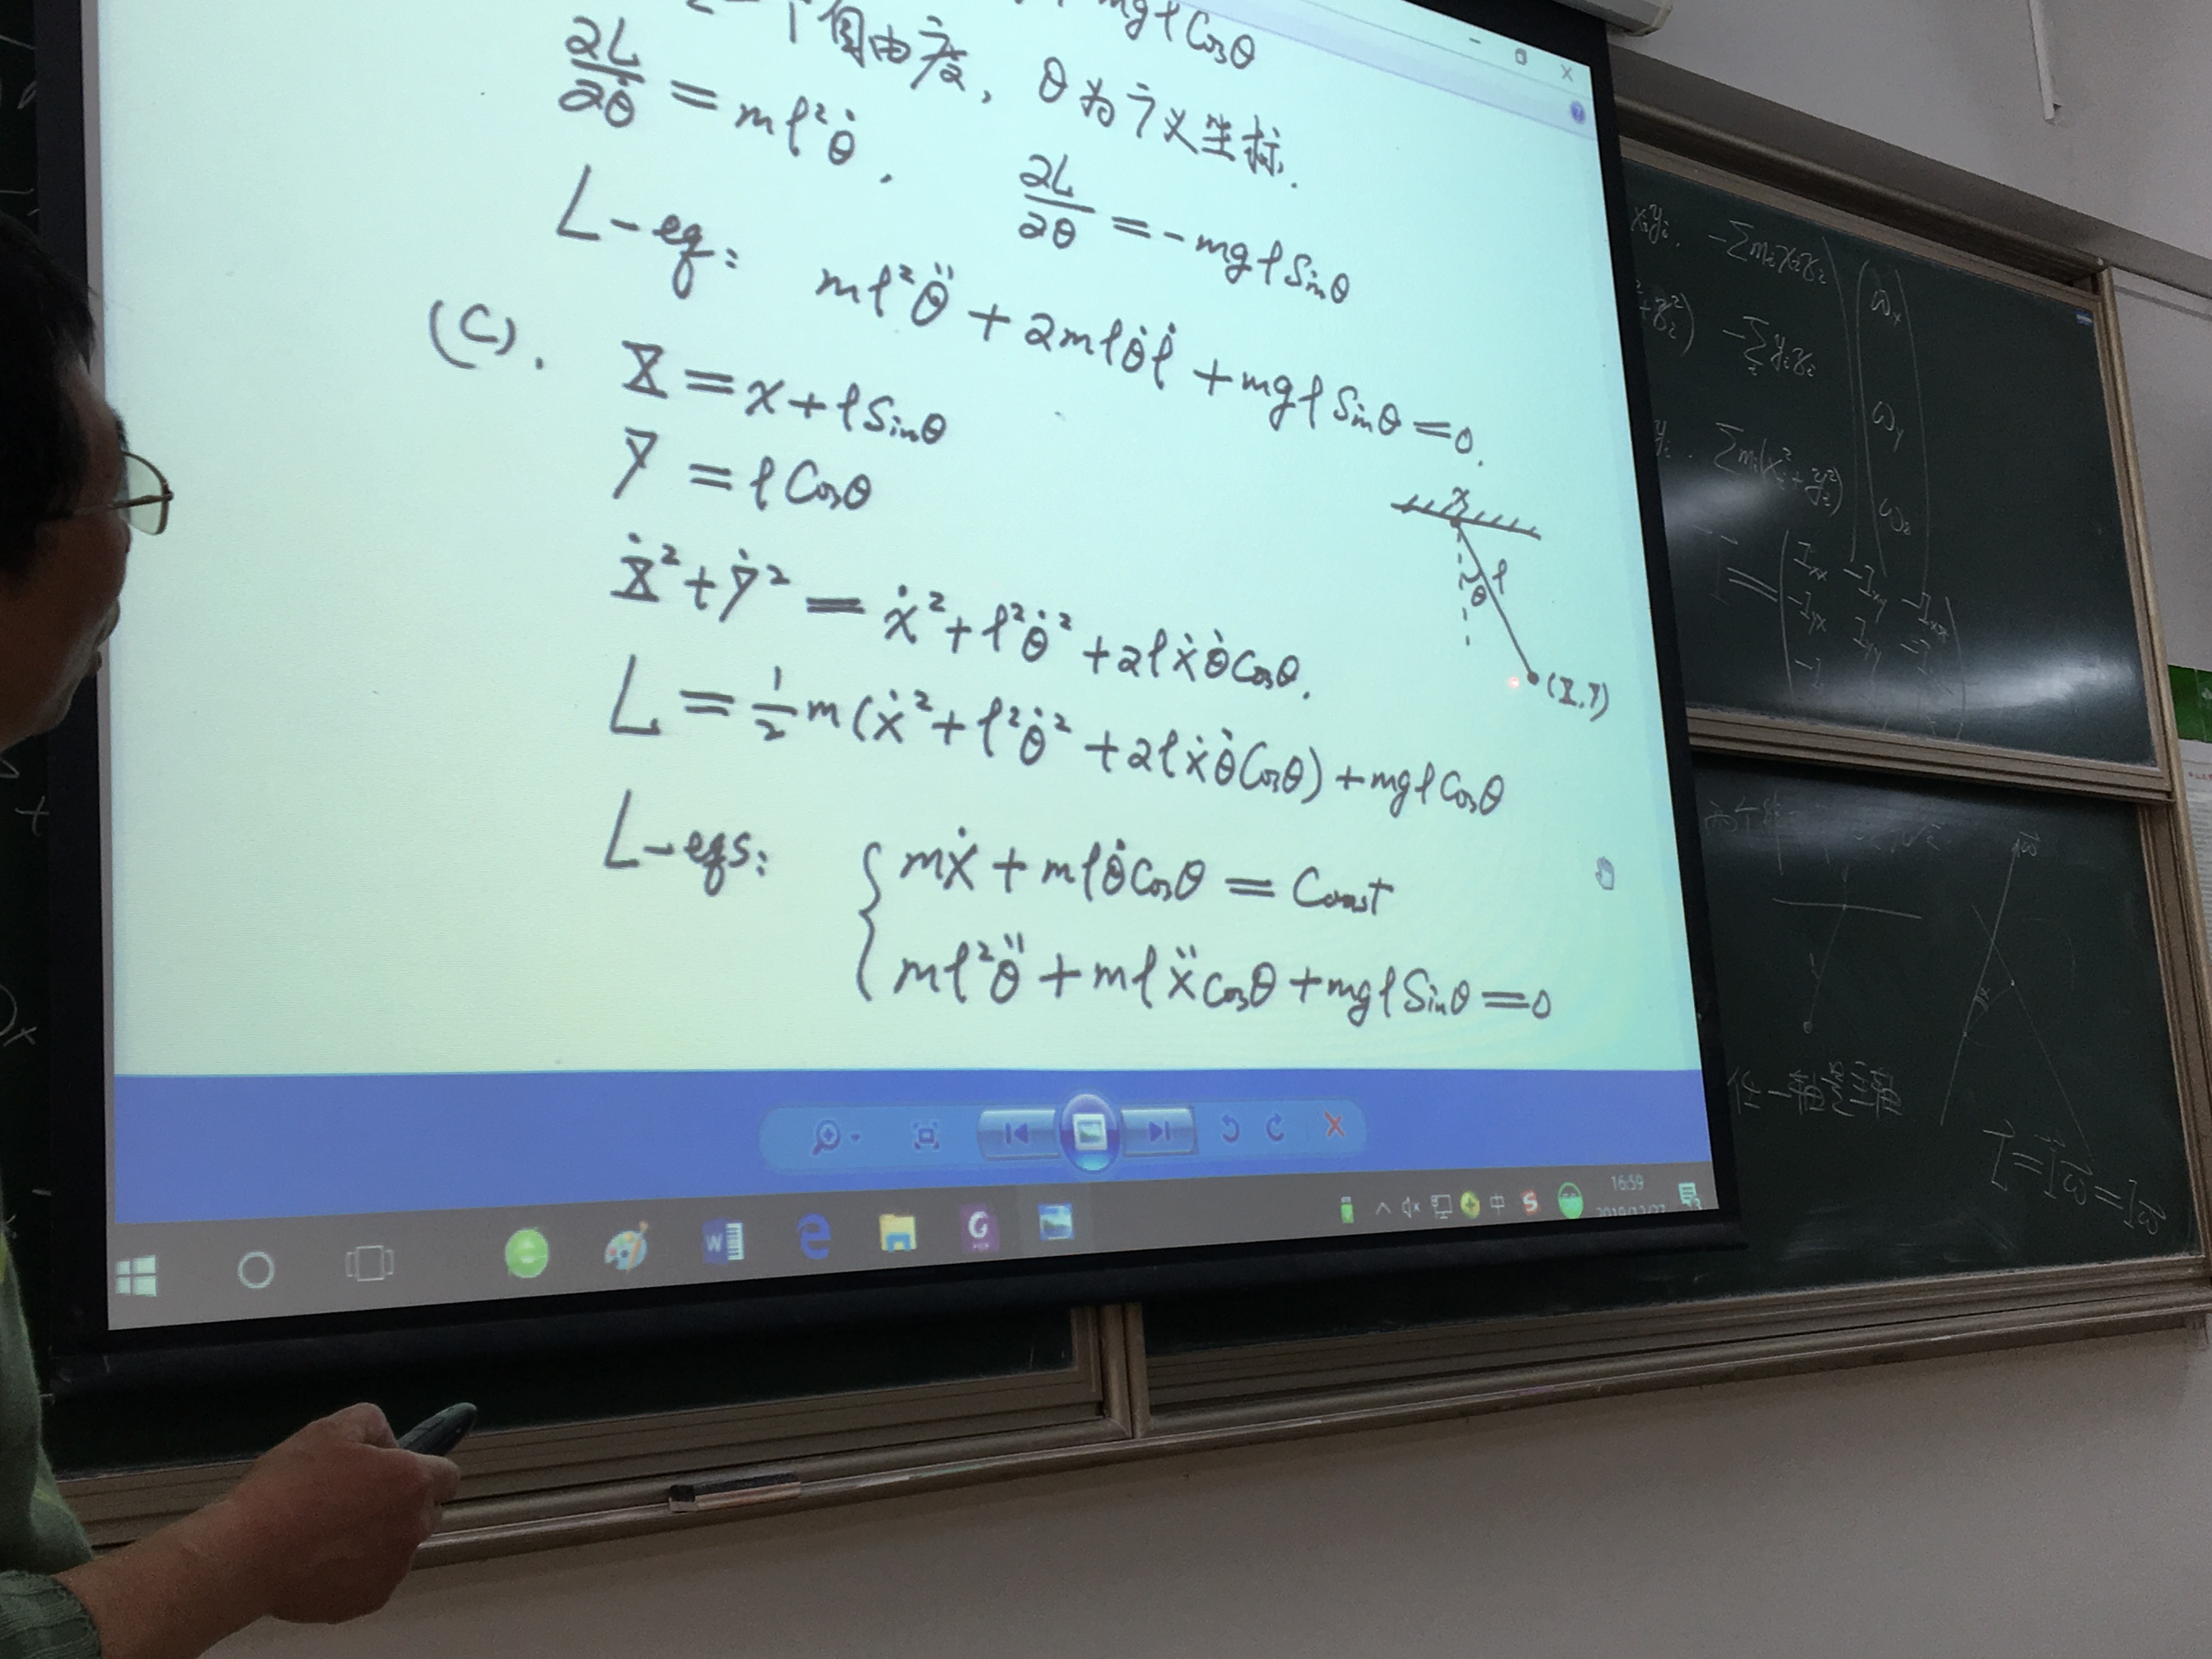 mgℓCosθ
个自由度, θ为广义坐标.
∂L/∂θ̇ = mℓ²θ̇. ∂L/∂θ = -mgℓSinθ
L-eq: mℓ²θ̈ + 2mℓθ̇ℓ̇ + mgℓSinθ = 0.
(C). X = x + ℓSinθ
Y = ℓCosθ
Ẋ² + Ẏ² = ẋ² + ℓ²θ̇² + 2ℓẋθ̇Cosθ.
L = 1/2 m(ẋ² + ℓ²θ̇² + 2ℓẋθ̇Cosθ) + mgℓCosθ
L-eqs: { mẋ + mℓθ̇Cosθ = Const
mℓ²θ̈ + mℓẍCosθ + mgℓSinθ = 0
x
ℓ
θ
(X,Y)
16:59
中
-∑mᵢxᵢzᵢ
ωx
-∑yᵢzᵢ
ωy
∑mᵢ(xᵢ²+yᵢ²)
ωz
= Ixx -Ixy -Ixz
-Iyx Iyy
任一轴
L⃗=Iω⃗=Iω⃗